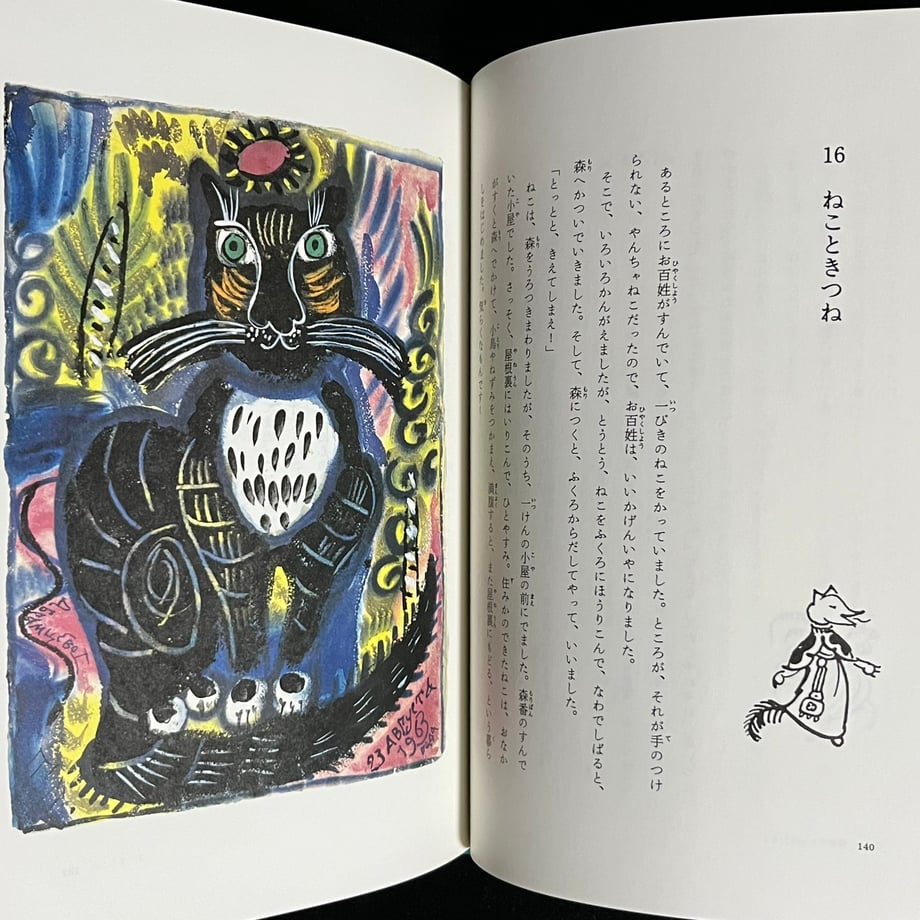 16 ねこときつね
あるところにお百姓がすんでいて、一ぴきのねこをかっていました。ところが、それが手のつけ
られない、やんちゃねこだったので、お百姓は、いいかげんいやになりました。
そこで、いろいろかんがえましたが、とうとう、ねこをふくろにほうりこんで、なわでしばると、
森へかついでいきました。そして、森につくと、ふくろからだしてやって、いいました。
「とっとと、きえてしまえ!」
ねこは、森をうろつきまわりましたが、そのうち、一けんの小屋の前にでました。森番のすんで
いた小屋でした。さっそく、屋根裏にはいりこんで、ひとやすみ。住みかのできたねこは、おなか
がすくと森へでかけて、小鳥やねずみをつかまえ、満腹すると、また屋根裏にもどる、という暮ら
しをはじめました。気らくなもんです!
140
23 АВГУСТА
1963